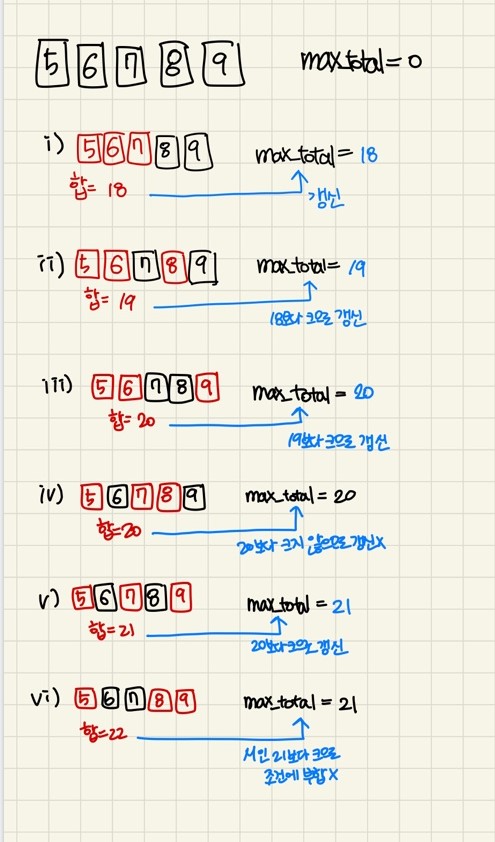 5 6 7 8 9 max_total = 0
i) 5 6 7 8 9 max_total = 18
합= 18
갱신
ii) 5 6 7 8 9 max_total = 19
합= 19
18보다 크므로 갱신
iii) 5 6 7 8 9 max_total = 20
합= 20
19보다 크므로 갱신
iv) 5 6 7 8 9 max_total = 20
합=20
20보다 크지 않으므로 갱신X
v) 5 6 7 8 9 max_total = 21
합=21
20보다 크므로 갱신
vi) 5 6 7 8 9 max_total = 21
합=22
M인 21보다 크므로
조건에 부합X